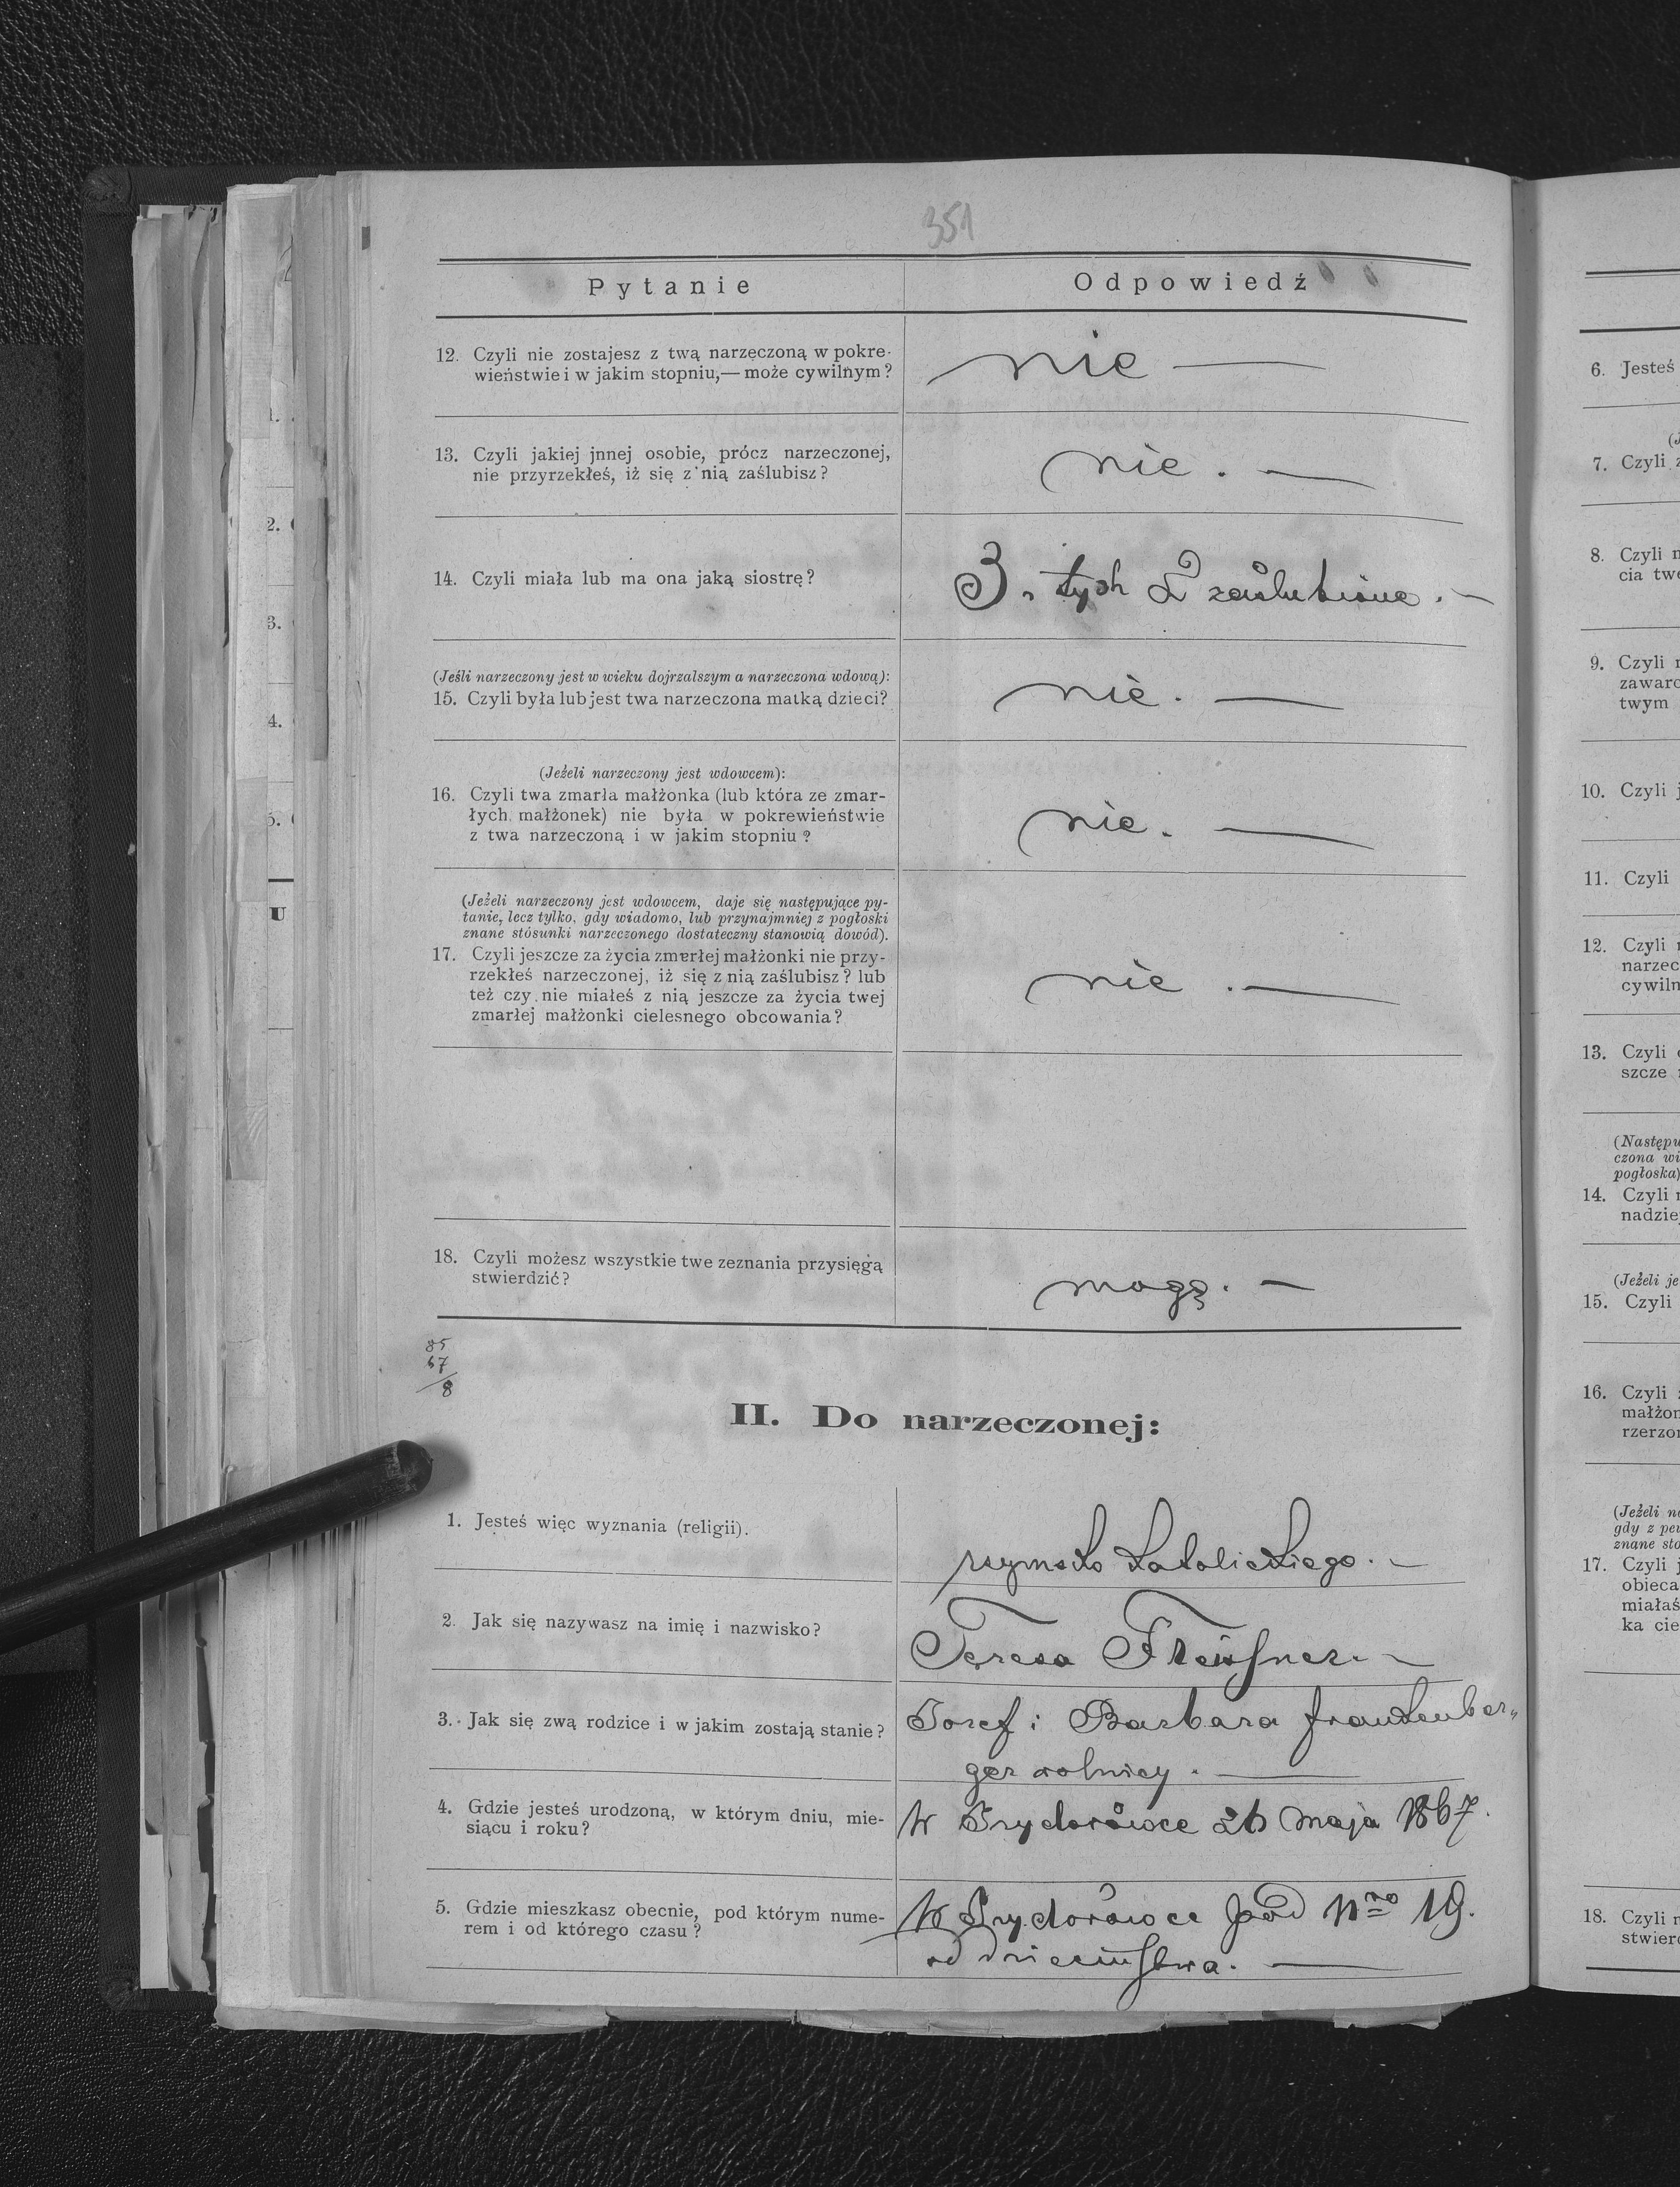 351
Pytanie
Odpowiedź
12. Czyli nie zostajesz z twą narzęczoną w pokre-
wieństwie i w jakim stopniu,— może cywilnym?
nie —
13. Czyli jakiej jnnej osobie, prócz narzeczonej,
nie przyrzekłeś, iż się z nią zaślubisz?
nie. —
14. Czyli miała lub ma ona jaką siostrę?
3, tych 2 zaślubione. —
(Jeśli narzeczony jest w wieku dojrzalszym a narzeczona wdową):
15. Czyli była lub jest twa narzeczona matką dzieci?
nie. —
(Jeżeli narzeczony jest wdowcem):
16. Czyli twa zmarła małżonka (lub która ze zmar-
łych małżonek) nie była w pokrewieństwie
z twa narzeczoną i w jakim stopniu?
nie. —
(Jeżeli narzeczony jest wdowcem, daje się następujące py-
tanie, lecz tylko, gdy wiadomo, lub przynajmniej z pogłoski
znane stósunki narzeczonego dostateczny stanowią dowód).
17. Czyli jeszcze za życia zmerłej małżonki nie przy-
rzekłeś narzeczonej, iż się z nią zaślubisz? lub
też czy nie miałeś z nią jeszcze za życia twej
zmarłej małżonki cielesnego obcowania?
nie. —
18. Czyli możesz wszystkie twe zeznania przysięgą
stwierdzić?
mogę. —
85
67
8
II. Do narzeczonej:
1. Jesteś więc wyznania (religii).
rzymsko katolickiego. —
2. Jak się nazywasz na imię i nazwisko?
Teresa —
3. Jak się zwą rodzice i w jakim zostają stanie?
Józef i Barbara frankenber„
ger rolnicy. —
4. Gdzie jesteś urodzoną, w którym dniu, mie-
siącu i roku?
W 26 maja 1867.
5. Gdzie mieszkasz obecnie, pod którym nume-
rem i od którego czasu?
W pod Nro 19.
od dzieciństwa. —
6. Jesteś
7. Czyli
8. Czyli
cia
9. Czyli
twym
10. Czyli
11. Czyli
12. Czyli
13. Czyli
szcze
pogłoska)
14. Czyli
15. Czyli
16. Czyli
17. Czyli
18. Czyli